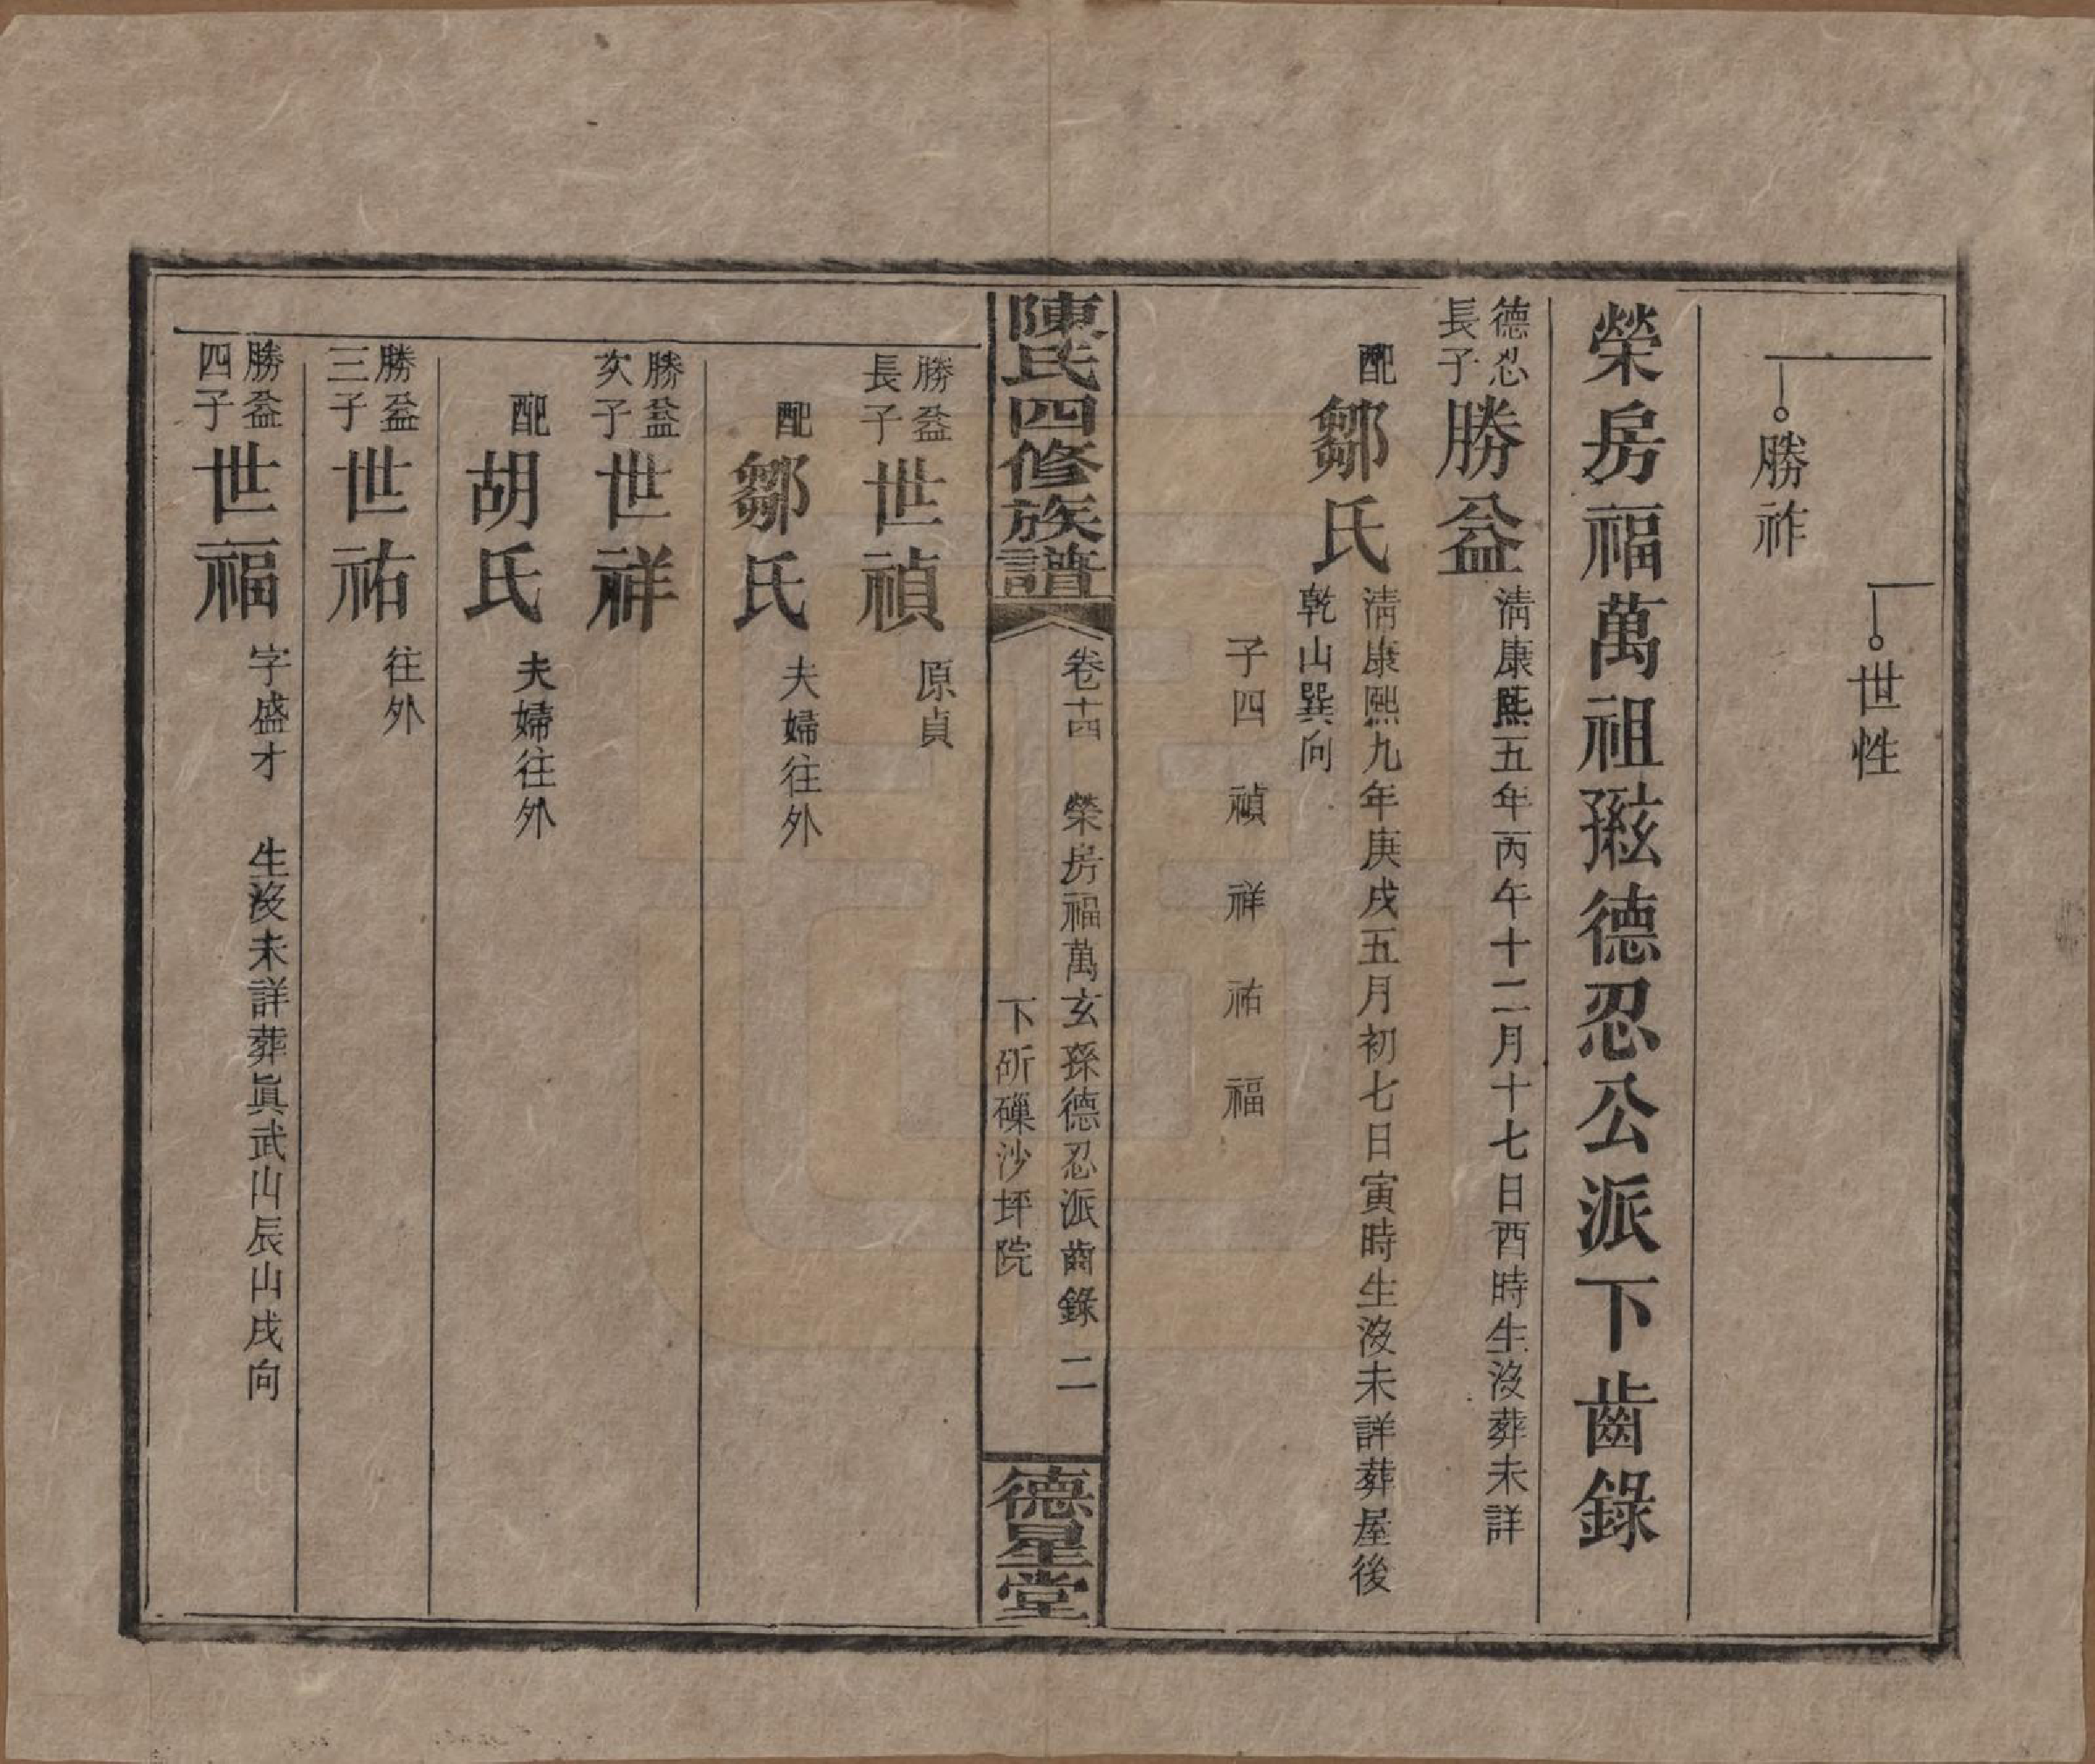 世性
勝祚
榮房福萬祖玄孫德忍公派下齒錄
德忍
長子
勝益
淸康熙五年丙午十二月十七日酉時生沒葬未詳
配
鄒氏
淸康熙九年庚戌五月初七日寅時生沒未詳葬屋後
乾山巽向
子四　禎　祥　祐　福
陳氏四修族譜
卷十四　榮房福萬玄孫德忍派齒錄　二
下斫磥沙坪院
德星堂
勝益
長子
世禎
原貞
配
鄒氏
夫婦往外
勝益
次子
世祥
配
胡氏
夫婦往外
勝益
三子
世祐
往外
勝益
四子
世福
字盛才　生沒未詳葬眞武山辰山戌向